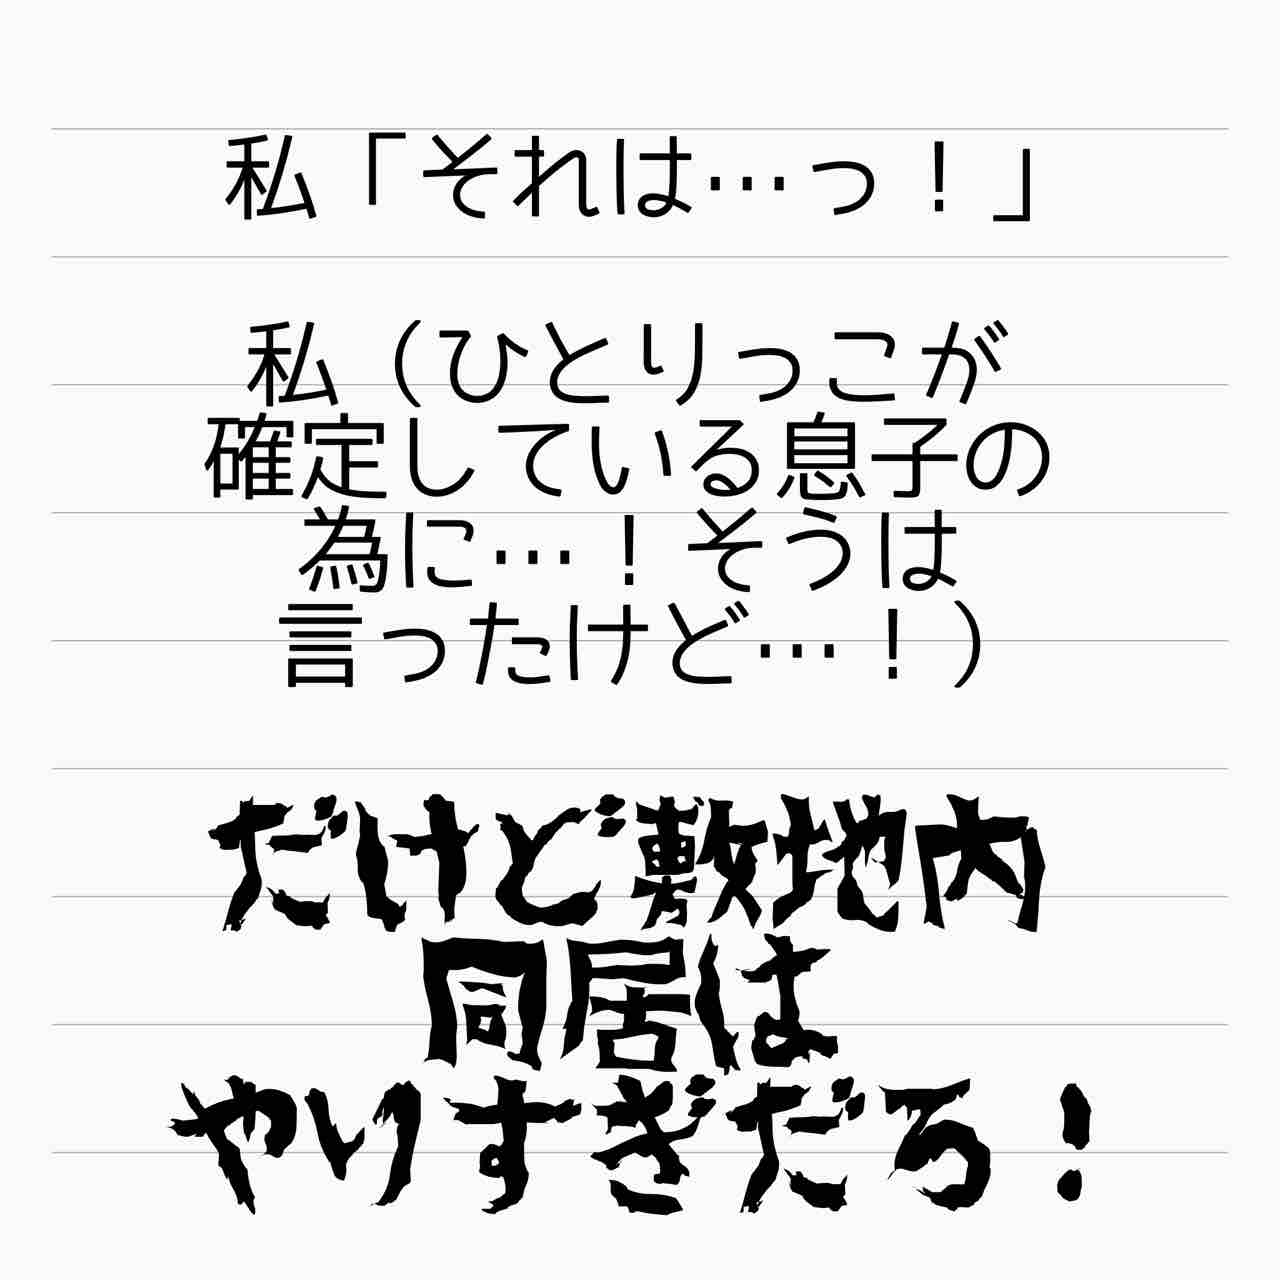 私「それは…っ！」
私（ひとりっこが
確定している息子の
為に…！そうは
言ったけど…！）
だけど敷地内
同居は
やりすぎだろ！